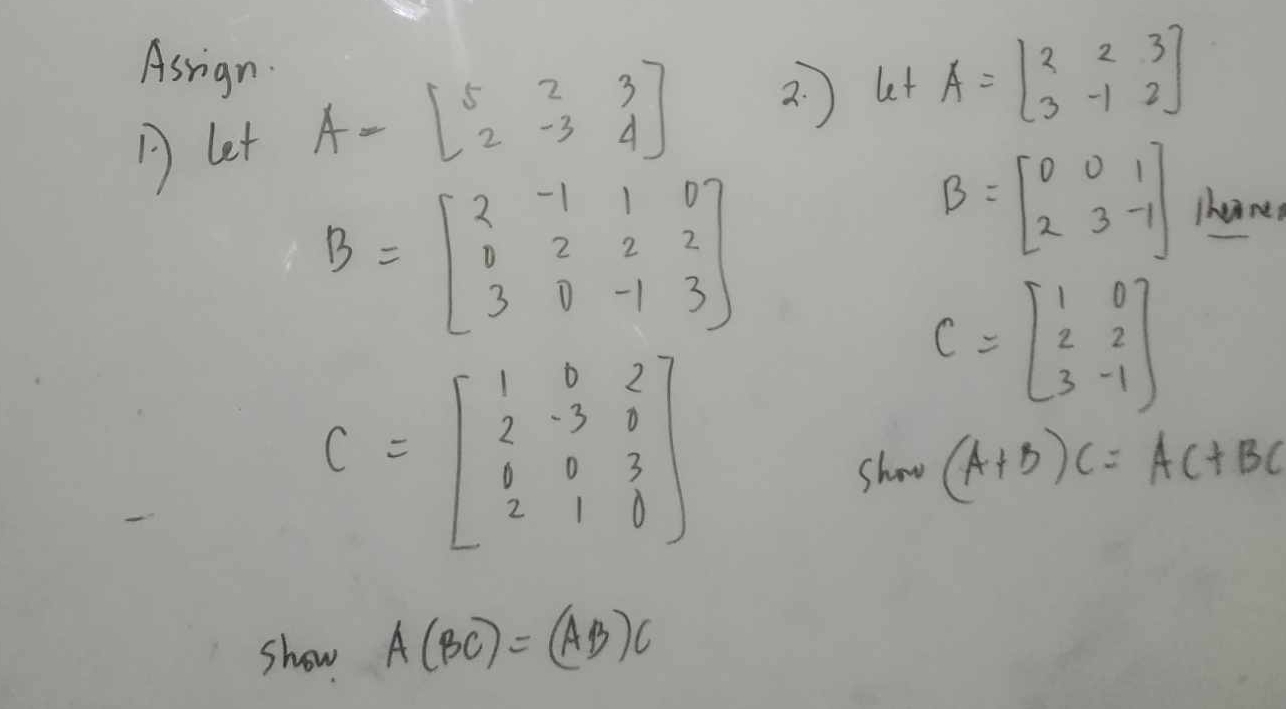 Assign.
1.) let A = [5 2 3
2 -3 4]
B = [2 -1 1 0
0 2 2 2
3 0 -1 3]
C = [1 0 2
2 -3 0
0 0 3
2 1 0]
show A(BC) = (AB)C
2.) let A = [2 2 3
3 -1 2]
B = [0 0 1
2 3 -1]
C = [1 0
2 2
3 -1]
show (A+B)C = AC+BC